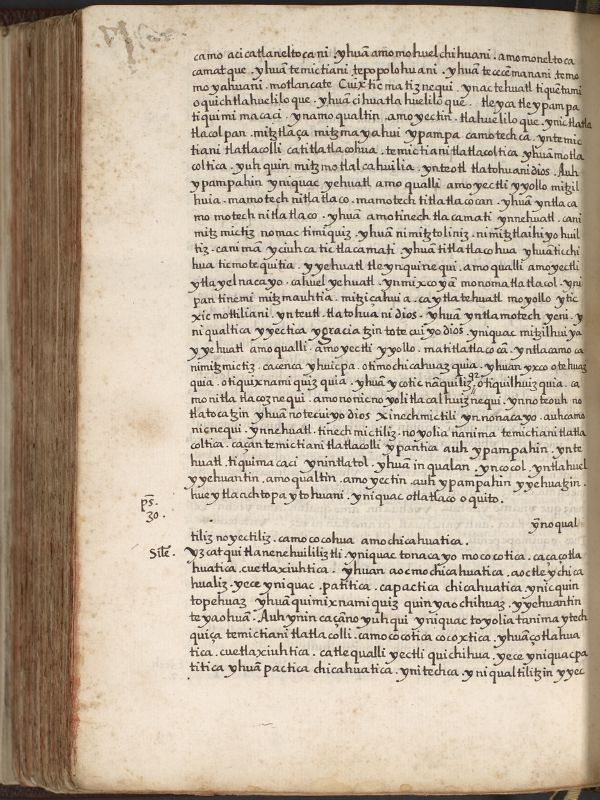 camo acicatlaneltocani. yhuā amomohuelchihuani. amomoneltoca
camatque. yhuā temictiani tepopolohuani. yhuā teccēmanani. temo
moyahuani. motlancate Cuix ticmatiznequi. ynac tehuatl tiquētami
oquichtlahueliloque. yhuā cihuatlahueliloquē. tleyca tleypampa
tiquimimacaci. ynamo qualtin. amo yectin. tlahueliloque. ynic tlatla
tlacolpan. mitztlaça mitzmayahui ypampa camo techca. yntemic
tiani tlatlacolli catitlatlacohua. temictiani tlatlacoltica yhuā motla
coltica. yuhquin mitzmotlalcahuilia. ynteotl tlatohuani dios. Auh
ypampahin yniquac yehuatl amo qualli amo yectli yyollo mitzil
huia. mamotech nitlatlaco. mamotech titlatlacocan. yhuā yntlaca
mo motech nitlatlaco. yhuā amo tinechtlacamati ynnehuatl. cani
mitzmictiz nomac timiquiz. yhuā nimitztoliniz. nimitztlaihiyohuil
tiz. caniman yciuhca tictlacamati. yhuā titlatlacohua yhuā ticchi
hua ticmotequitia. yyehuatl tleynquinequi. amo qualli amo yectli
ytlayelnacayo. cahuel yehuatl. ynmixcoyā monomatlatlacol. yni
pan tinemi mitzmauhtia. mitziçahuia. caytlatehuatl moyollo ytic
xicmottiliani. ynteutl. tlatohuani dios. yhuā yntlamotech yeni. y
niqualtica yyectica ygraciatzin totecuiyo dios yniquac mitzilhuiya
yyehuatl amo qualli. amo yectli yyollo. matitlatlacocā. yntlacamo ca
nimitzmictiz. cacenca yhuicpa. otimochicahuazquia. yhuan yxco otehuaz
quia. otiquixnamiquizquia. yhuā ycoticnāquiliz otiquilhuizquia. ca
monitlatlacoznequi. amononicnoyolitlacalhuiznequi. ynnoteouh no
tlatocatzin yhuā notecuiyo dios xinechmictili ynnonacayo. auhcamo
nicnequi. ynnehuatl. tinechmictiliz. noyolia nanima temictiani tlatla
coltica. caçan temictiani tlatlacolli ypantica auh ypampahin. ynte
huatl. tiquimacaci ynintlatol. yhuā inqualan. yncocol. yntlahuel
yyehuantin. amo qualtin. amo yectin. auh ypampahin yyehuatzin.
hueytlachtopaytohuani. yniquac otlatlaco oquito.
ps.
30.
yn no qual
tiliz noyectiliz. camo cocohua amo chicahuatica.
Sile. Yzcatqui tlanenehuililiztli. yniquac tonacayo mococotica. caçaçotla
huatica. cuetlaxiuhtica. yhuan aocmo chicahuatica. aoctle ychica
hualiz. yece yniquac. patitica. capactica chicahuatica. ynicquin
topehuaz yhuā quimixnamiquiz quinyaochihuaz. yyehuantin
teyaohuā. Auh ynin caçāno yuhqui yniquac toyolia tanima ytech
quiça temictiani tlatlacolli. camococotica cocoxtica. yhuā çotlahua
tica. cuetlaxiuhtica. catle qualli yectli quichihua. yece yniquac pa
titica yhuā pactica chicahuatica. ynitechca. yniqualtilitzin yyec